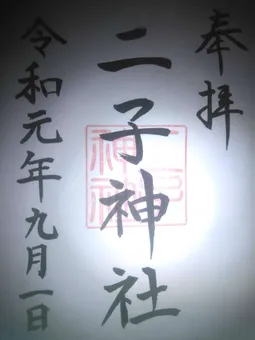 奉拝
二子神社
令和元年九月一日